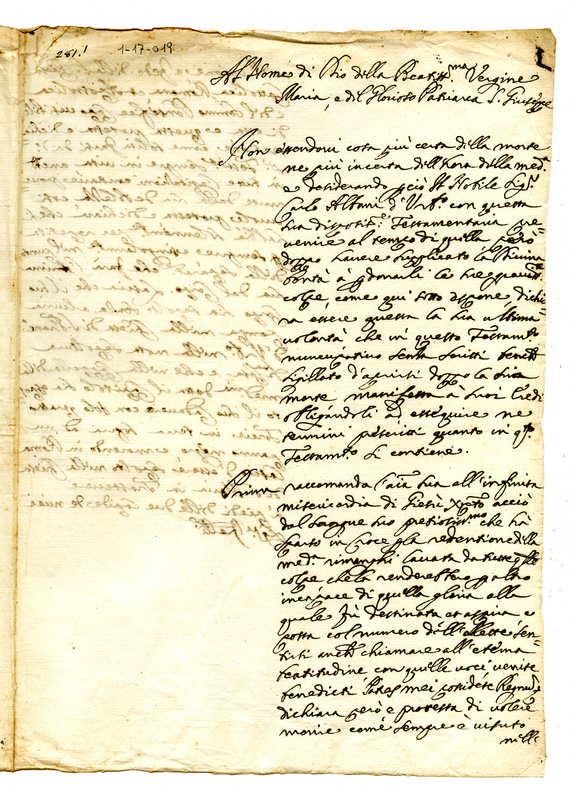 281.1
1-17-019
Al Nome di Dio della Beatiss.ma Vergine
Maria, e del Glorioso Patriarca S. Giuseppe
Non essendovi cosa più certa della morte
ne più incerta dell'hora della med.a
e desiderando p ciò Il Nobile Sig.r
Carlo Albani d'Urb.o con questa
sua disposit.e Testamentaria pre
venire al tempo di quella però
doppo havere supplicato la Divina
bontà a p donarli le sue
colpe, come qui sotto dispone, dichia
ra essere questa la sua ultima
volontà che in questo Testam.to
nuncupativo senza scritti benché
sigillato d'aprirsi doppo la sua
morte manifesta à suoi Eredi
obligandoli ad esseguire ne
termini quanto in q.to
Testam.to si contiene.
Prima raccomanda l'aīa sua all'infinita
misericordia di Giesù Xpto acciò
dal sangue suo pretiosiss.mo che hà
sparto in Croce p la redentione della
med.a rimanghi lavata da tutte le
colpe che la renderebbero p altro
incapace di quella gloria alla
quale fù destinata et aspira e
possa col numero dell'ellette sen
tirsi anch chiamare all'eterna
beatitudine con quelle voci venite
benedicti Patris mei possidete Regnum
dichiara però e protesta di volere
morire come sempre è vissuto
nelle